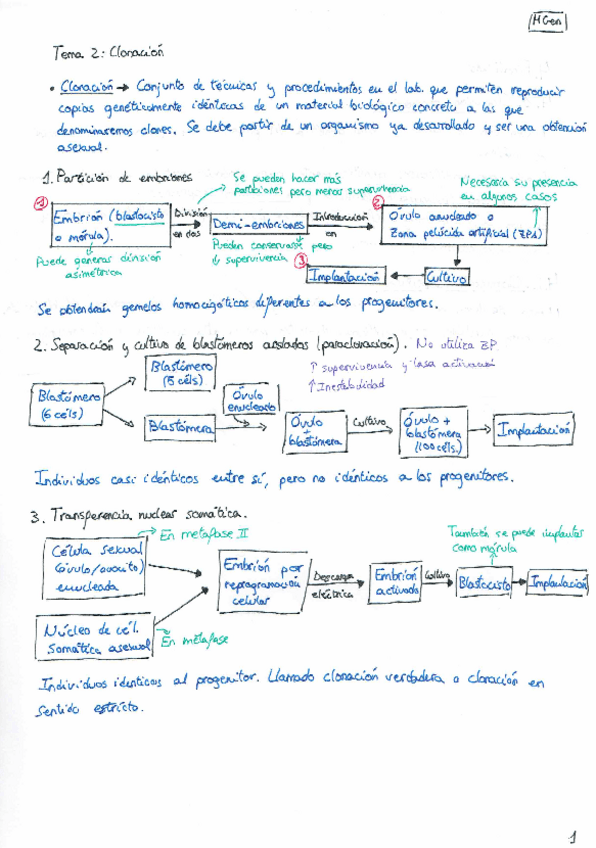 MGen
Tema 2: Clonación
• Clonación → Conjunto de técnicas y procedimientos en el lab. que permiten reproducir
copias genéticamente idénticas de un material biológico concreto a las que
denominaremos clones. Se debe partir de un organismo ya desarrollado y ser una obtención
asexual.
1. Partición de embriones
Se pueden hacer más
particiones pero menos supervivencia
Necesaria su presencia
en algunos casos
1
Embrión (blastocisto
o mórula).
División
en dos
Demi-embriones
Introducción
en
2
Óvulo anucleado o
Zona pelúcida artificial (ZPA)
Puede generar división
asimétrica
Pueden conservarse pero
↓ supervivencia
3
Implantación
Cultivo
Se obtendrán gemelos homocigóticos diferentes a los progenitores.
2. Separación y cultivo de blastómeros aislados (paraclonación). No utiliza ZP
↑ supervivencia y tasa activación
↑ Inestabilidad
Blastómero
(6 céls)
Blastómero
(5 céls)
Blastómera
Óvulo
enucleado
Óvulo
+
blastómera
Cultivo
Óvulo +
blastómera
(100 céls.)
Implantación
Individuos casi idénticos entre sí, pero no idénticos a los progenitores.
3. Transferencia nuclear somática.
En metafase II
También se puede implantar
como mórula
Célula sexual
(óvulo/oocito)
enucleada
Núcleo de cél.
Somática asexual
En metafase
Embrión por
reprogramación
celular
Descarga
eléctrica
Embrión
activado
Cultivo
Blastocisto
Implantación
Individuos idénticos al progenitor. Llamado clonación verdadera o clonación en
sentido estricto.
1